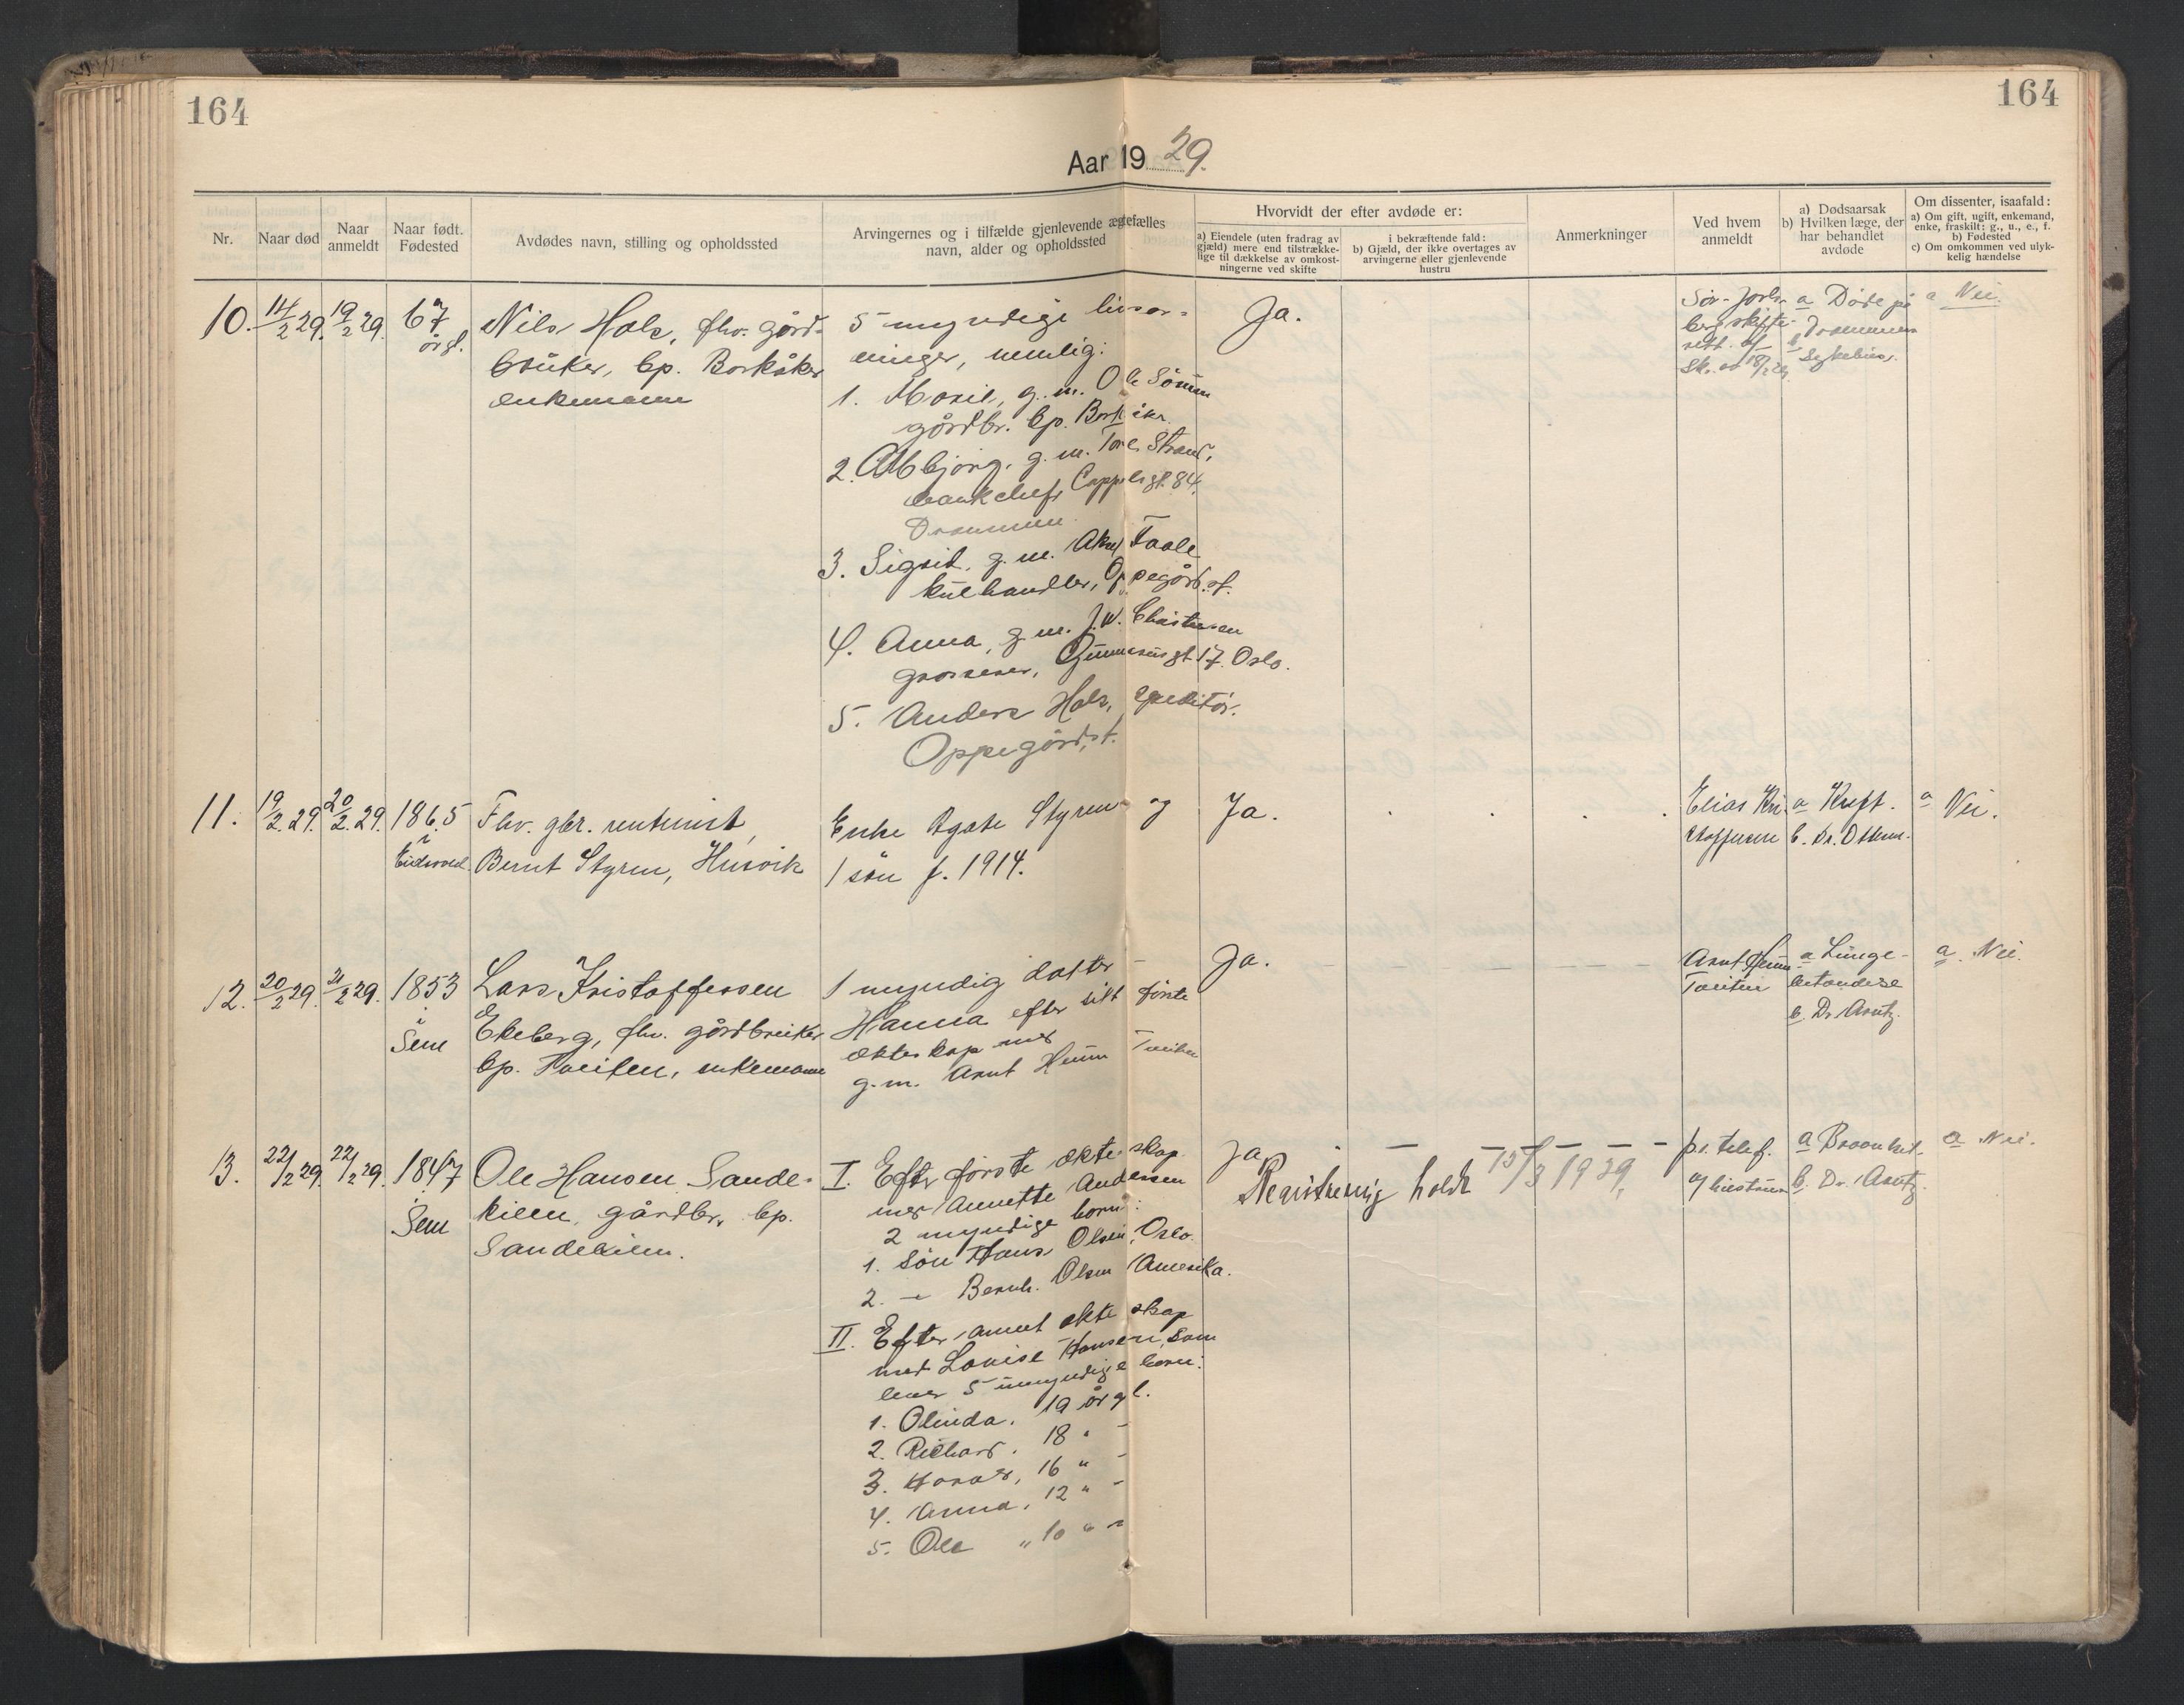 164
164
Aar 1929.
Nr.
Naar død
Naar anmeldt
Naar født. Fødested
Avdødes navn, stilling og opholdssted
Arvingernes og i tilfælde gjenlevende ægtefælles
navn, alder og opholdssted
Hvorvidt der efter avdøde er:
a) Eiendele (uten fradrag av
gjæld) mere end tilstrække-
lige til dækkelse av omkost-
ningerne ved skifte
i bekræftende fald:
b) Gjæld, der ikke overtages av
arvingerne eller gjenlevende
hustru
Anmerkninger
Ved hvem
anmeldt
a) Dødsaarsak
b) Hvilken læge, der
har behandlet
avdøde
Om dissenter, isaafald:
a) Om gift, ugift, enkemand,
enke, fraskilt: g., u., e., f.
b) Fødested
c) Om omkommen ved ulyk-
kelig hændelse
10. 14/2 29. 19/2 29. 67
år gl.
Nils Hals, fhv. gård-
bruker, bp. Borkåker
enkemann
5 myndige livsar-
vinger, nemlig:
1. Marie, g. m. Ole
gårdbr. bp.
2. g. m. Strand,
bankchef, Cappelsgt. 84,
Drammen
3. Sigrid, g. m. Aksel
kulhandler, Oppegård st.
4. Anna, g. m. J. W. Christensen
grosserer, gt. 17. Oslo.
5. Anders Hals, expeditör.
Oppegård st.
Ja.
a Døde på
b Drammens
Sykehus.
a Nei.
11. 19/2. 29. 20/2. 29. 1865
i
Eidsvold.
Fhv. gbr. rentenist,
Bernt Styren, Husvik
Enke Agate Styren og
1 sön f. 1914.
Ja.
Elias Kri-
stoffersen
a Kreft.
b. Dr.
a Nei.
12. 20/2 29. 21/2 29. 1853
i
Sem
Lars Kristoffersen
Ekeberg, fhv. gårdbruker
bp. Tveiten, enkemann
1 myndig datter
Hanna efter sitt første
ekteskap med
g. m. Arnt Heum Tveiten
Ja.
Arnt Heum
Tveiten
a Lunge-
betendelse
b. Dr. Arntz.
a. Nei.
13. 22/2 29. 22/2 29. 1847
i
Sem
Ole Hansen Sande-
kilen, gårdbr. bp.
Sandekilen.
I. Efter første ekteskap
med Annette Andersen
2 myndige barn:
1. Sön Hans Olsen, Oslo.
2. — Bernh. Olsen Amerika.
II. Efter annet ekteskap
med Louise Hansen, som
lever 5 umyndige barn:
1. Olinda, 19 år gl.
2. Richard, 18 " —
3. 16 " —
4. Anna, 12 " —
5. Ole " 10 " —
Ja.
Registrering holdt 15/3 1929.
pr. telef.
av hustruen
a
b. Dr. Arntz.
a Nei.